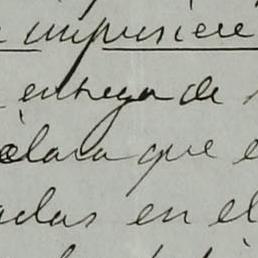 impusiere
entrega de
clara que e
adas en el